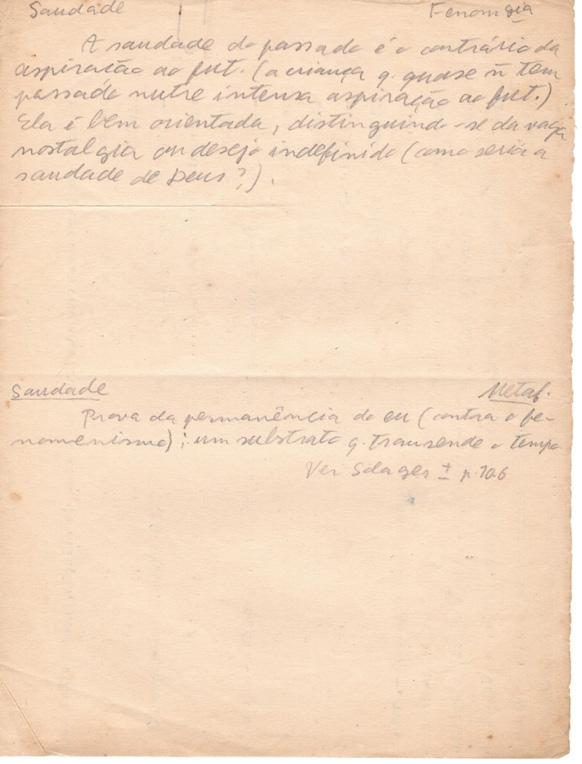 Saudade Fenomgia
A saudade do passado é o contrário da
aspiração ao fut. (a criança q. quase ñ tem
passado nutre intensa aspiração ao fut.)
Ela é bem orientada, distinguindo-se da vaga
nostalgia ou desejo indefinido (como seria a
saudade de Deus?).
Saudade Metaf.
Prova da permanência do eu (contra o fe-
nomenismo); um substrato q. transcende o tempo
Ver Solages ± p. 106